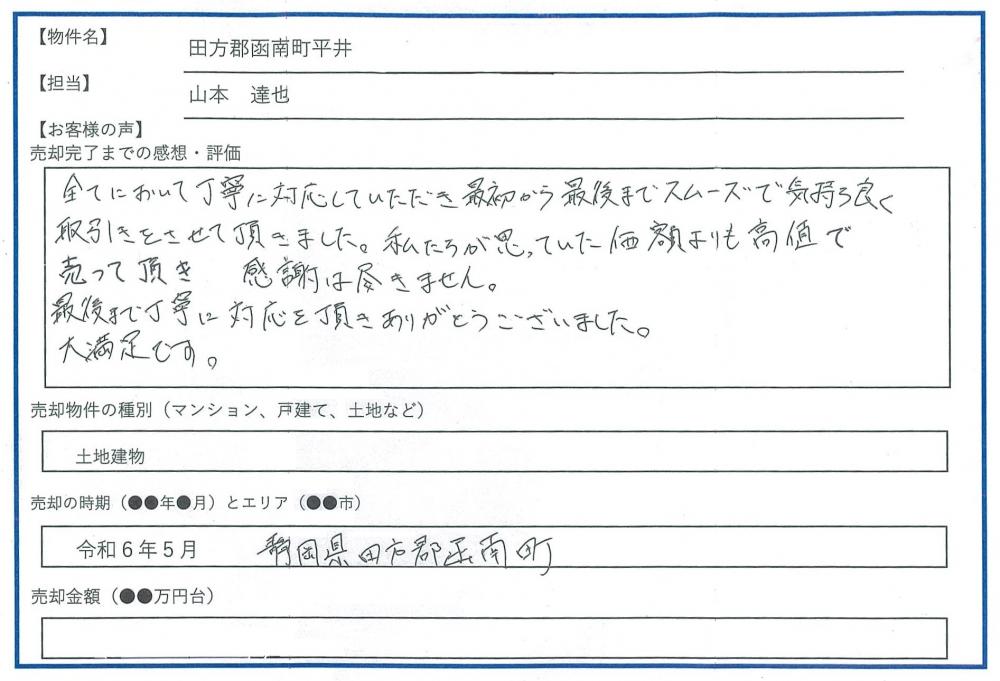 【物件名】
田方郡函南町平井
【担当】
山本　達也
【お客様の声】
売却完了までの感想・評価
全てにおいて丁寧に対応していただき最初から最後までスムーズで気持ち良く
取引きをさせて頂きました。私たちが思っていた価額よりも高値で
売って頂き　感謝は尽きません。
最後まで丁寧に対応を頂きありがとうございました。
大満足です。
売却物件の種別（マンション、戸建て、土地など）
土地建物
売却の時期（●●年●月）とエリア（●●市）
令和6年5月　静岡県田方郡函南町
売却金額（●●万円台）